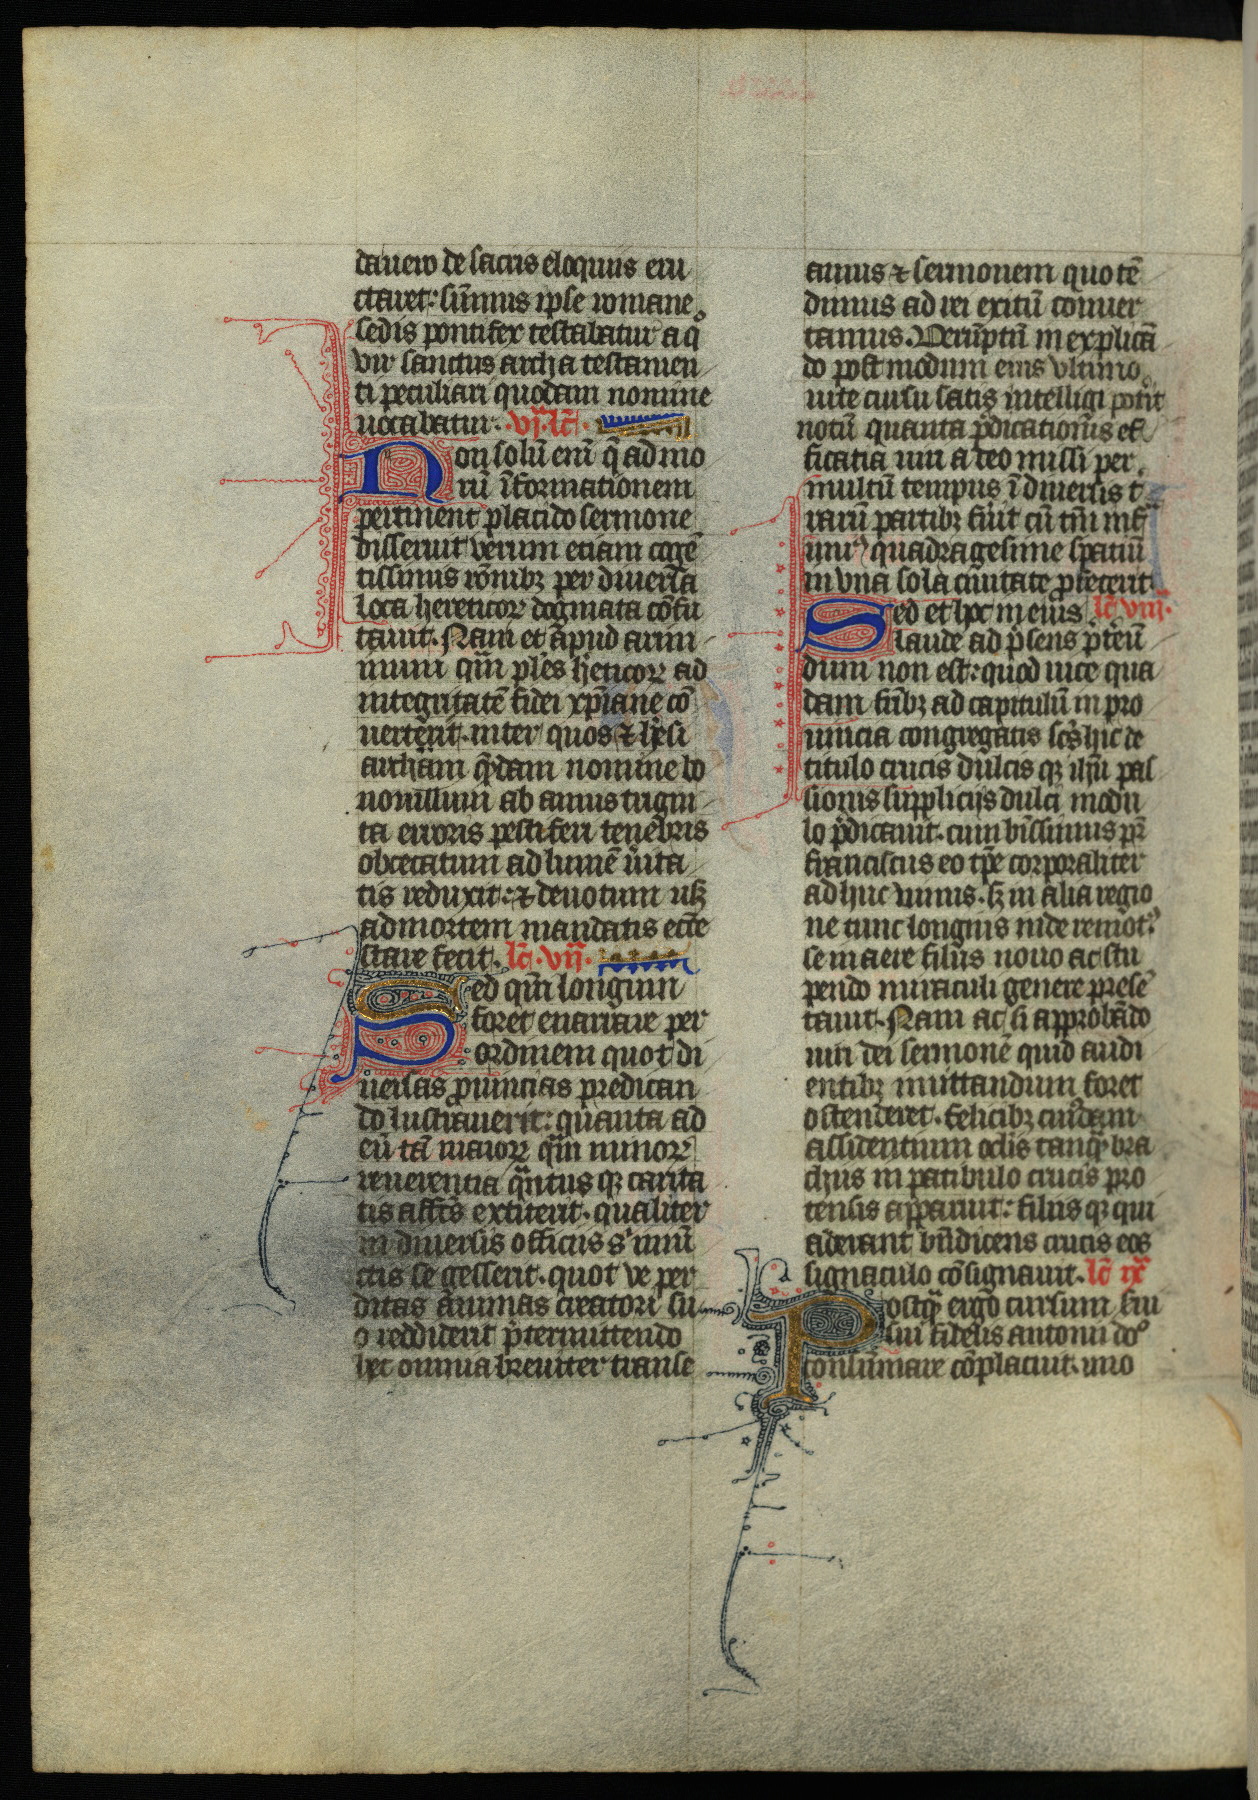 daueio de sacris eloquiis eru
ctaret: su̅mus ip̅se romane
sedis pontifex testabatur a q̊
vir sanctus archa testamen
ti peculiari quodam nomine
vocabatur. vj. lc̅.
Non solu̅ eni̅ q̅ ad mo
ru̅ i̅formationem
pertinent placido sermone
disseruit verum etiam cogē
tissimus ro̅nibꝫ per diuersa
loca hereticoꝝ dogmata co̅fu
tauit. Nam et apud arim
num qm̅ ples heticoꝝ ad
integritate̅ fidei xp̅iane co̅
uertērit. inter quos ⁊ he̅si
archam q̅dam nomine bo
nonillum ab annis trigin
ta erroris pestiferi tenebris
obcecatum ad lume̅ u̅ita
tis reduxit: ⁊ deuotum usꝫ
ad mortem mandatis eccē
stare fecit. lc̅. vij.
Sed qm̅ longum
foret enarrare per
ordinem quot di
uersas ꝓuincias predican
do lustrauerit: quanta ad
eu̅ ta̅ maioꝝ q̅m minoꝝ
reuerentia q̅ntus qꝫ carita
tis affc̅s extiterit. qualiter
in diuersis officiis si' iniu̅
ctis se gesserit. quot ve per
ditas animas creatori su
o reddiderit p̅termittendo
hec omnia breuiter transe
amus ⁊ sermonem quo te̅
dimus ad rei exitu̅ conuer
tamus. Veru̅ptn̅ in explica̅
do post modum eius vltimo
uite cursu satis intelligi potit
notu̅ quanta p̅dicationis ef
ficatia uiri a deo missi per
multu̅ tempus i̅ diuersis t
raru̅ partibꝫ fuit cu̅ tm̅ in
uniꝰ quadragesime spatiu̅
in vna sola ciuitate ꝓfecerit
Sed et hoc in eius lc̅ viij.
laude ad p̅sens p̅teu̅
dum non est: quod uice qua
dam fr̅ibꝫ ad capitulu̅ in pro
uincia congregatis sc̅s hic de
titulo crucis dulcis qꝫ ihu̅ pas
sionis suppliciis dulci modu
lo p̅dicauit. cum bt̅issimus pr̅
franciscus eo tp̅e corporaliter
adhuc viuus. sꝫ in alia regio
ne tunc longius inde remotꝰ.
se in aere filiis nouo ac stu
pendo miraculi genere prese̅
tauit. Nam ac si approba̅do
uiri dei sermone̅ quid audi
entibꝫ imittandum foret
ostenderet. felicibꝫ cuiusdam
assidentium oc̅lis tanq̅ bra
chiis in patibulo crucis pro
tensis apparuit: filiis qꝫ qui
aderant bn̅dicens crucis eos
signaculo co̅signauit. lc̅ ix
Postq̅ ergo cursum fru
sui fidelis antonii do
consu̅mare co̅placuit. uno